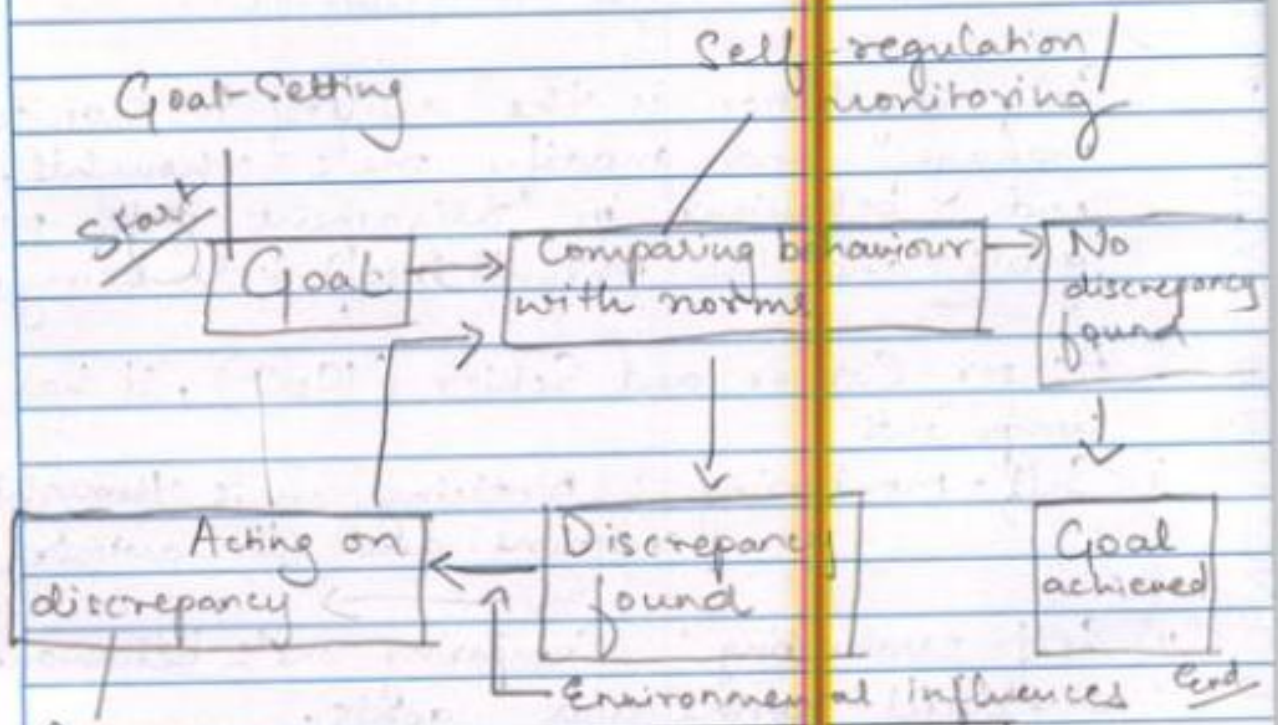 Self-regulation/
monitoring
Goal-Setting
Start
Goal
Comparing behaviour
with norms
No
discrepancy
found
Acting on
discrepancy
Discrepancy
found
Goal
achieved
Environmental influences
End